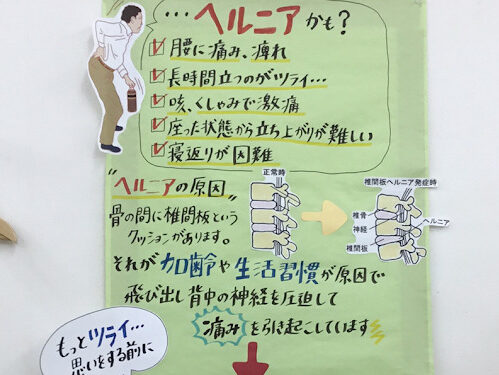 …ヘルニアかも？
腰に痛み、痺れ
長時間立つのがツライ…
咳、くしゃみで激痛
座った状態から立ち上がりが難しい
寝返りが困難
"ヘルニアの原因"
骨の間に椎間板という
クッションがあります。
それが加齢や生活習慣が原因で
飛び出し背中の神経を圧迫して
痛みを引き起こしています
正常時
椎間板ヘルニア発症時
椎骨
神経
椎間板
ヘルニア
もっとツライ…
思いをする前に